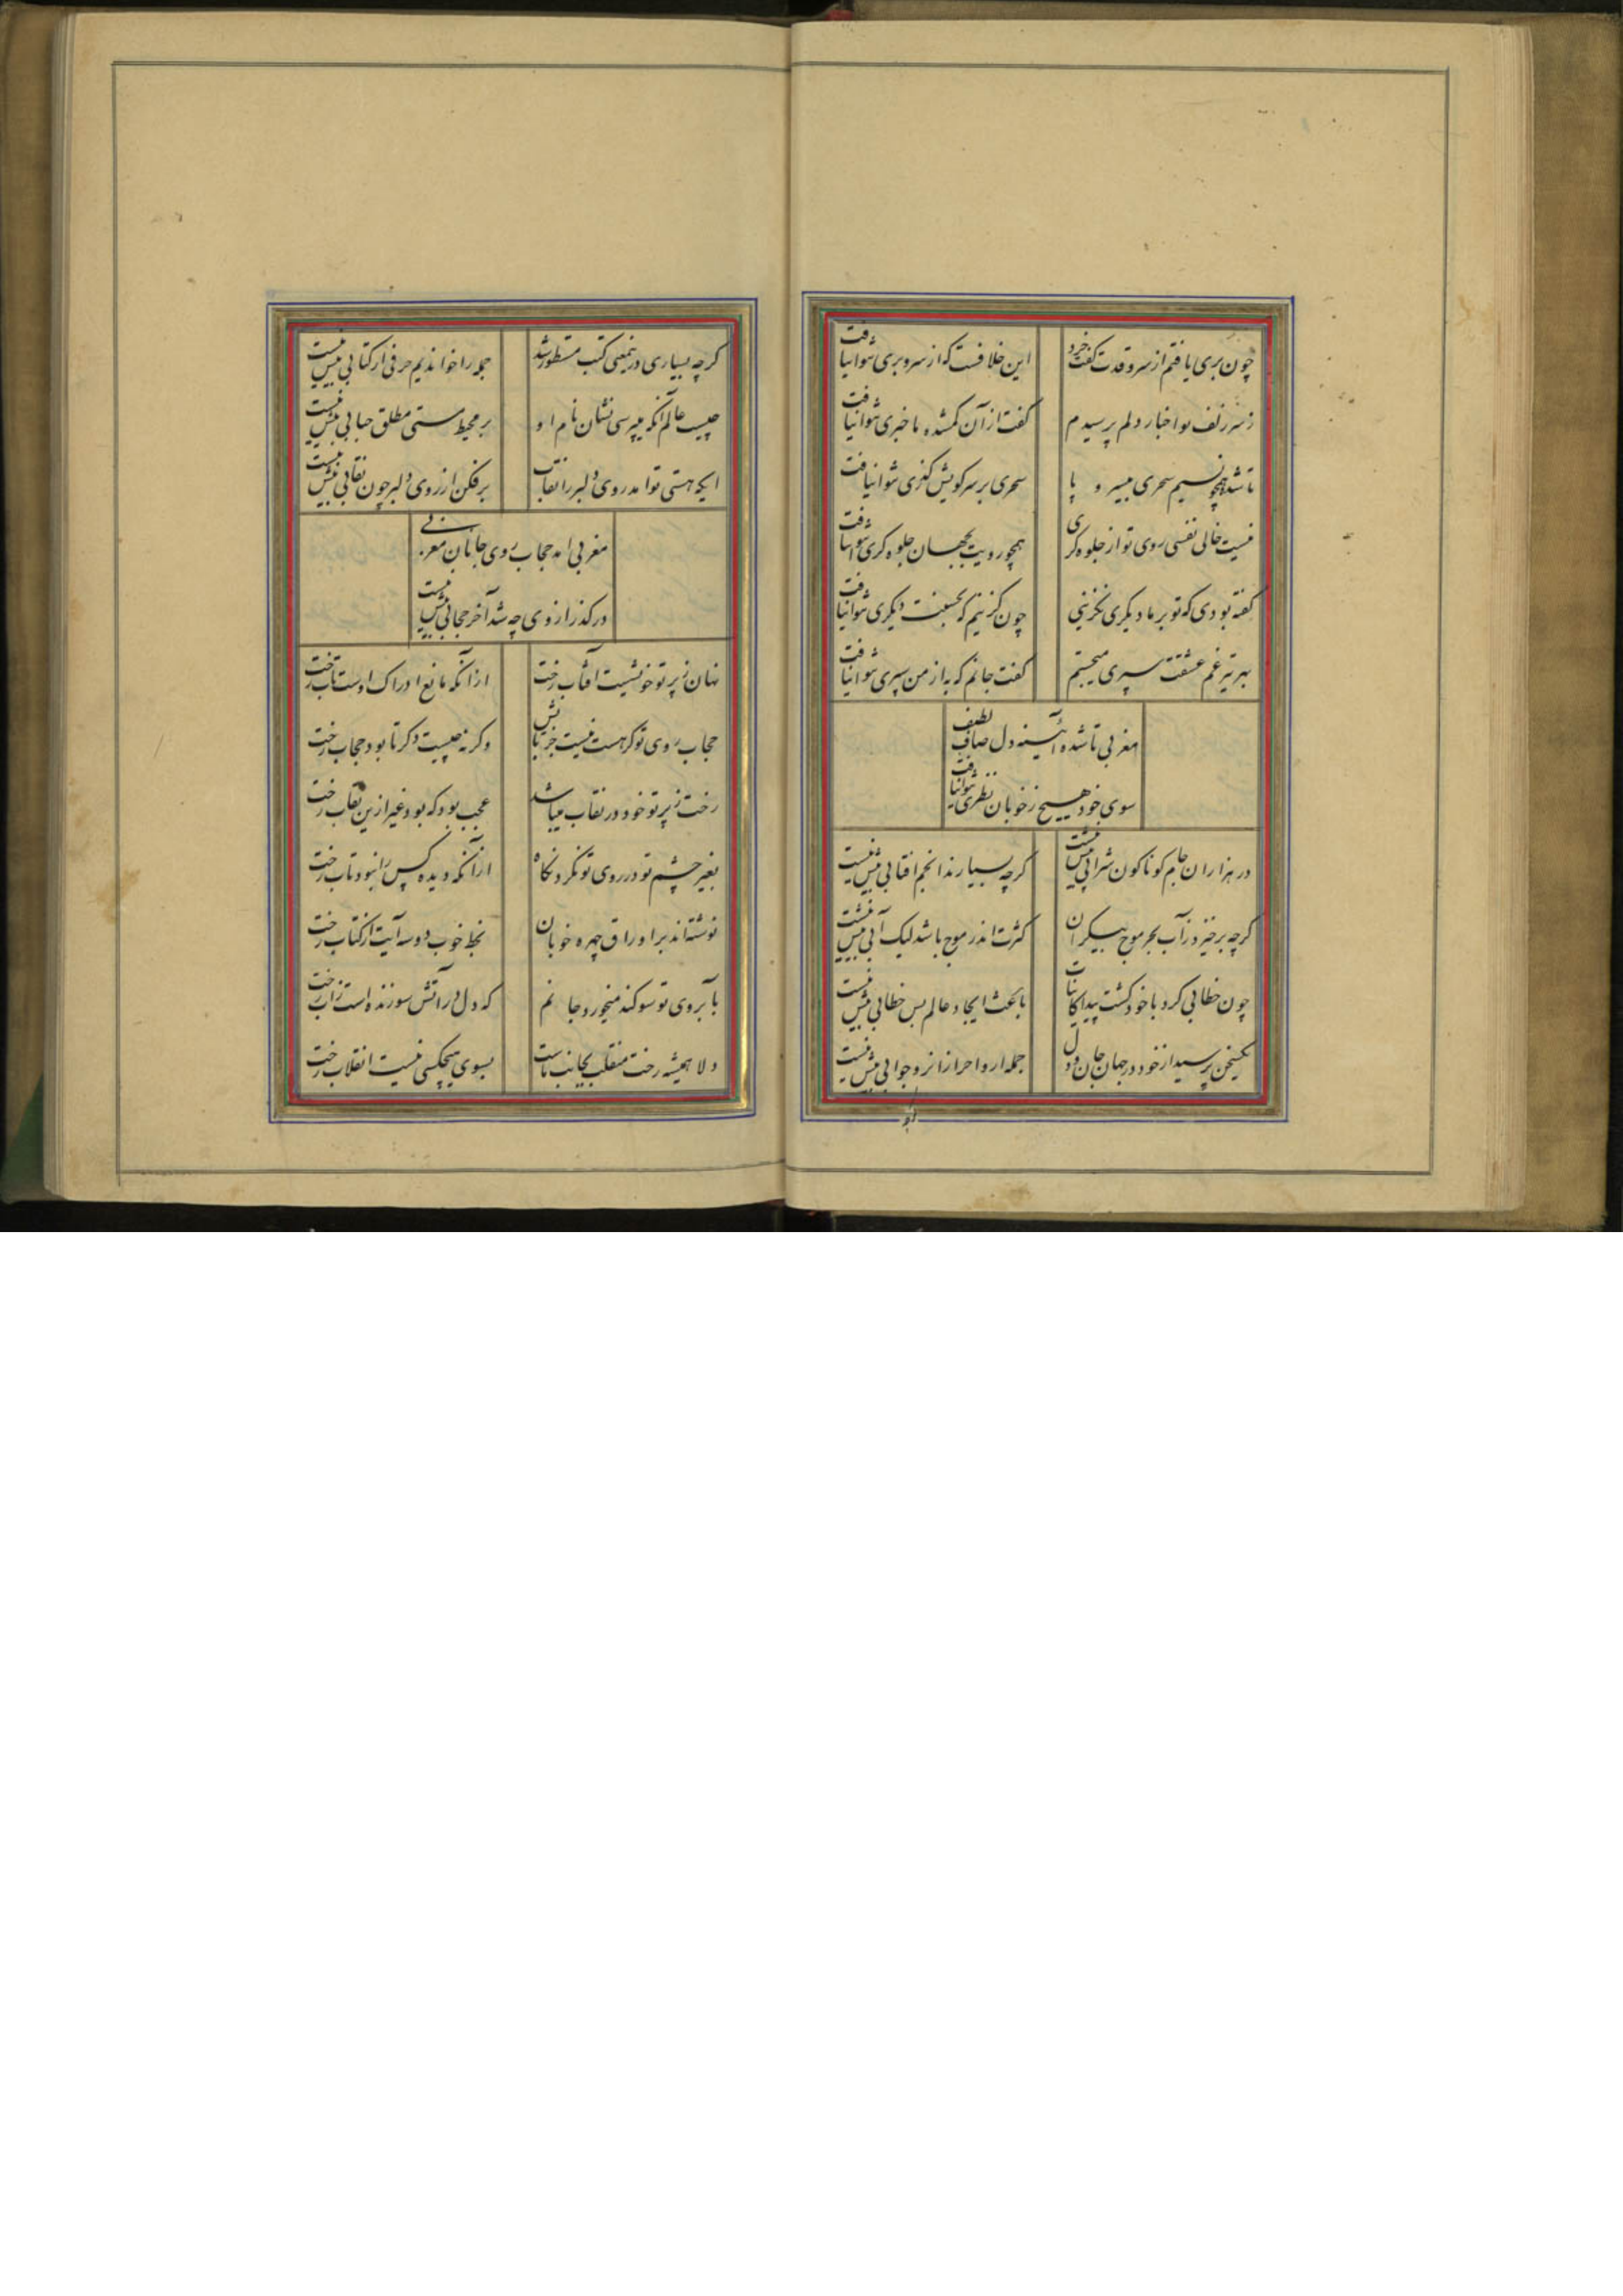 چون بری یافتم از سرو قدت گفت خرد
این خلافست که از سرو بری نتوان یافت
ز سر زلف تو اخبار دلم پرسیدم
گفت از آن گمشده ما خبری نتوان یافت
تا نشد همچو نسیم سحری بی سر و پا
سحری بر سر کویش گذری نتوان یافت
نیست خالی نفسی روی تو از جلوه گری
همچو رویت بجهان جلوه گری نتوان یافت
گفته بودی که تو بر ما دیگری نگزینی
چون گزینم که بحسنت دیگری نتوان یافت
بهر تیر غم عشقت سپری میجستم
گفت جانم که به از من سپری نتوان یافت
مغربی تا شده آئینه دل صاف لطیف
سوی خود هیچ ز خوبان نظری نتوان یافت
در هزاران جام گوناگون شرابی بیش نیست
گرچه بسیارند انجم افتابی بیش نیست
گرچه برخیزد ز آب بحر موج بیکران
کثرت اندر موج باشد لیک آبی بیش نیست
چون خطابی کرد با خود گشت پیدا کاینات
باعث ایجاد عالم بس خطابی بیش نیست
یکسخن پرسید از خود در جهان جان و دل
جمله ارواح را زانرو جوابی بیش نیست
گرچه بسیاری درینمعنی کتب مسطور شد
جمله را خواندیم حرفی از کتابی بیش نیست
چیست عالم آنکه میپرسی نشان نام او
بر محیط هستی مطلق حبابی بیش نیست
ایکه هستی تو امد روی دلبر را نقاب
برفکن از روی دلبر چون نقابی بیش نیست
مغربی امد حجاب روی جانان مغربی
درگذر از وی چه شد آخر حجابی بیش نیست
نهان ز پرتو خویشست آفتاب رخت
از آنکه مانع ادراک اوست تاب رخت
حجاب روی تو گر هست نیست جز تابش
وگرنه چیست دگر تا بود حجاب رخت
رخت ز پرتو خود در نقاب میباشد
عجب بود که بود غیر ازین نقاب رخت
بغیر چشم تو در روی تو نکرد نگاه
از آنکه دیده کس را نبود تاب رخت
نوشته اند بر اوراق چهره خوبان
بخط خوب دو سه آیت از کتاب رخت
بآبروی تو سوگند میخورد جانم
که دل در آتش سوزنده است ز آب رخت
دلا همیشه رخت منقلب بجانب ماست
بسوی هیچکسی نیست انقلاب رخت